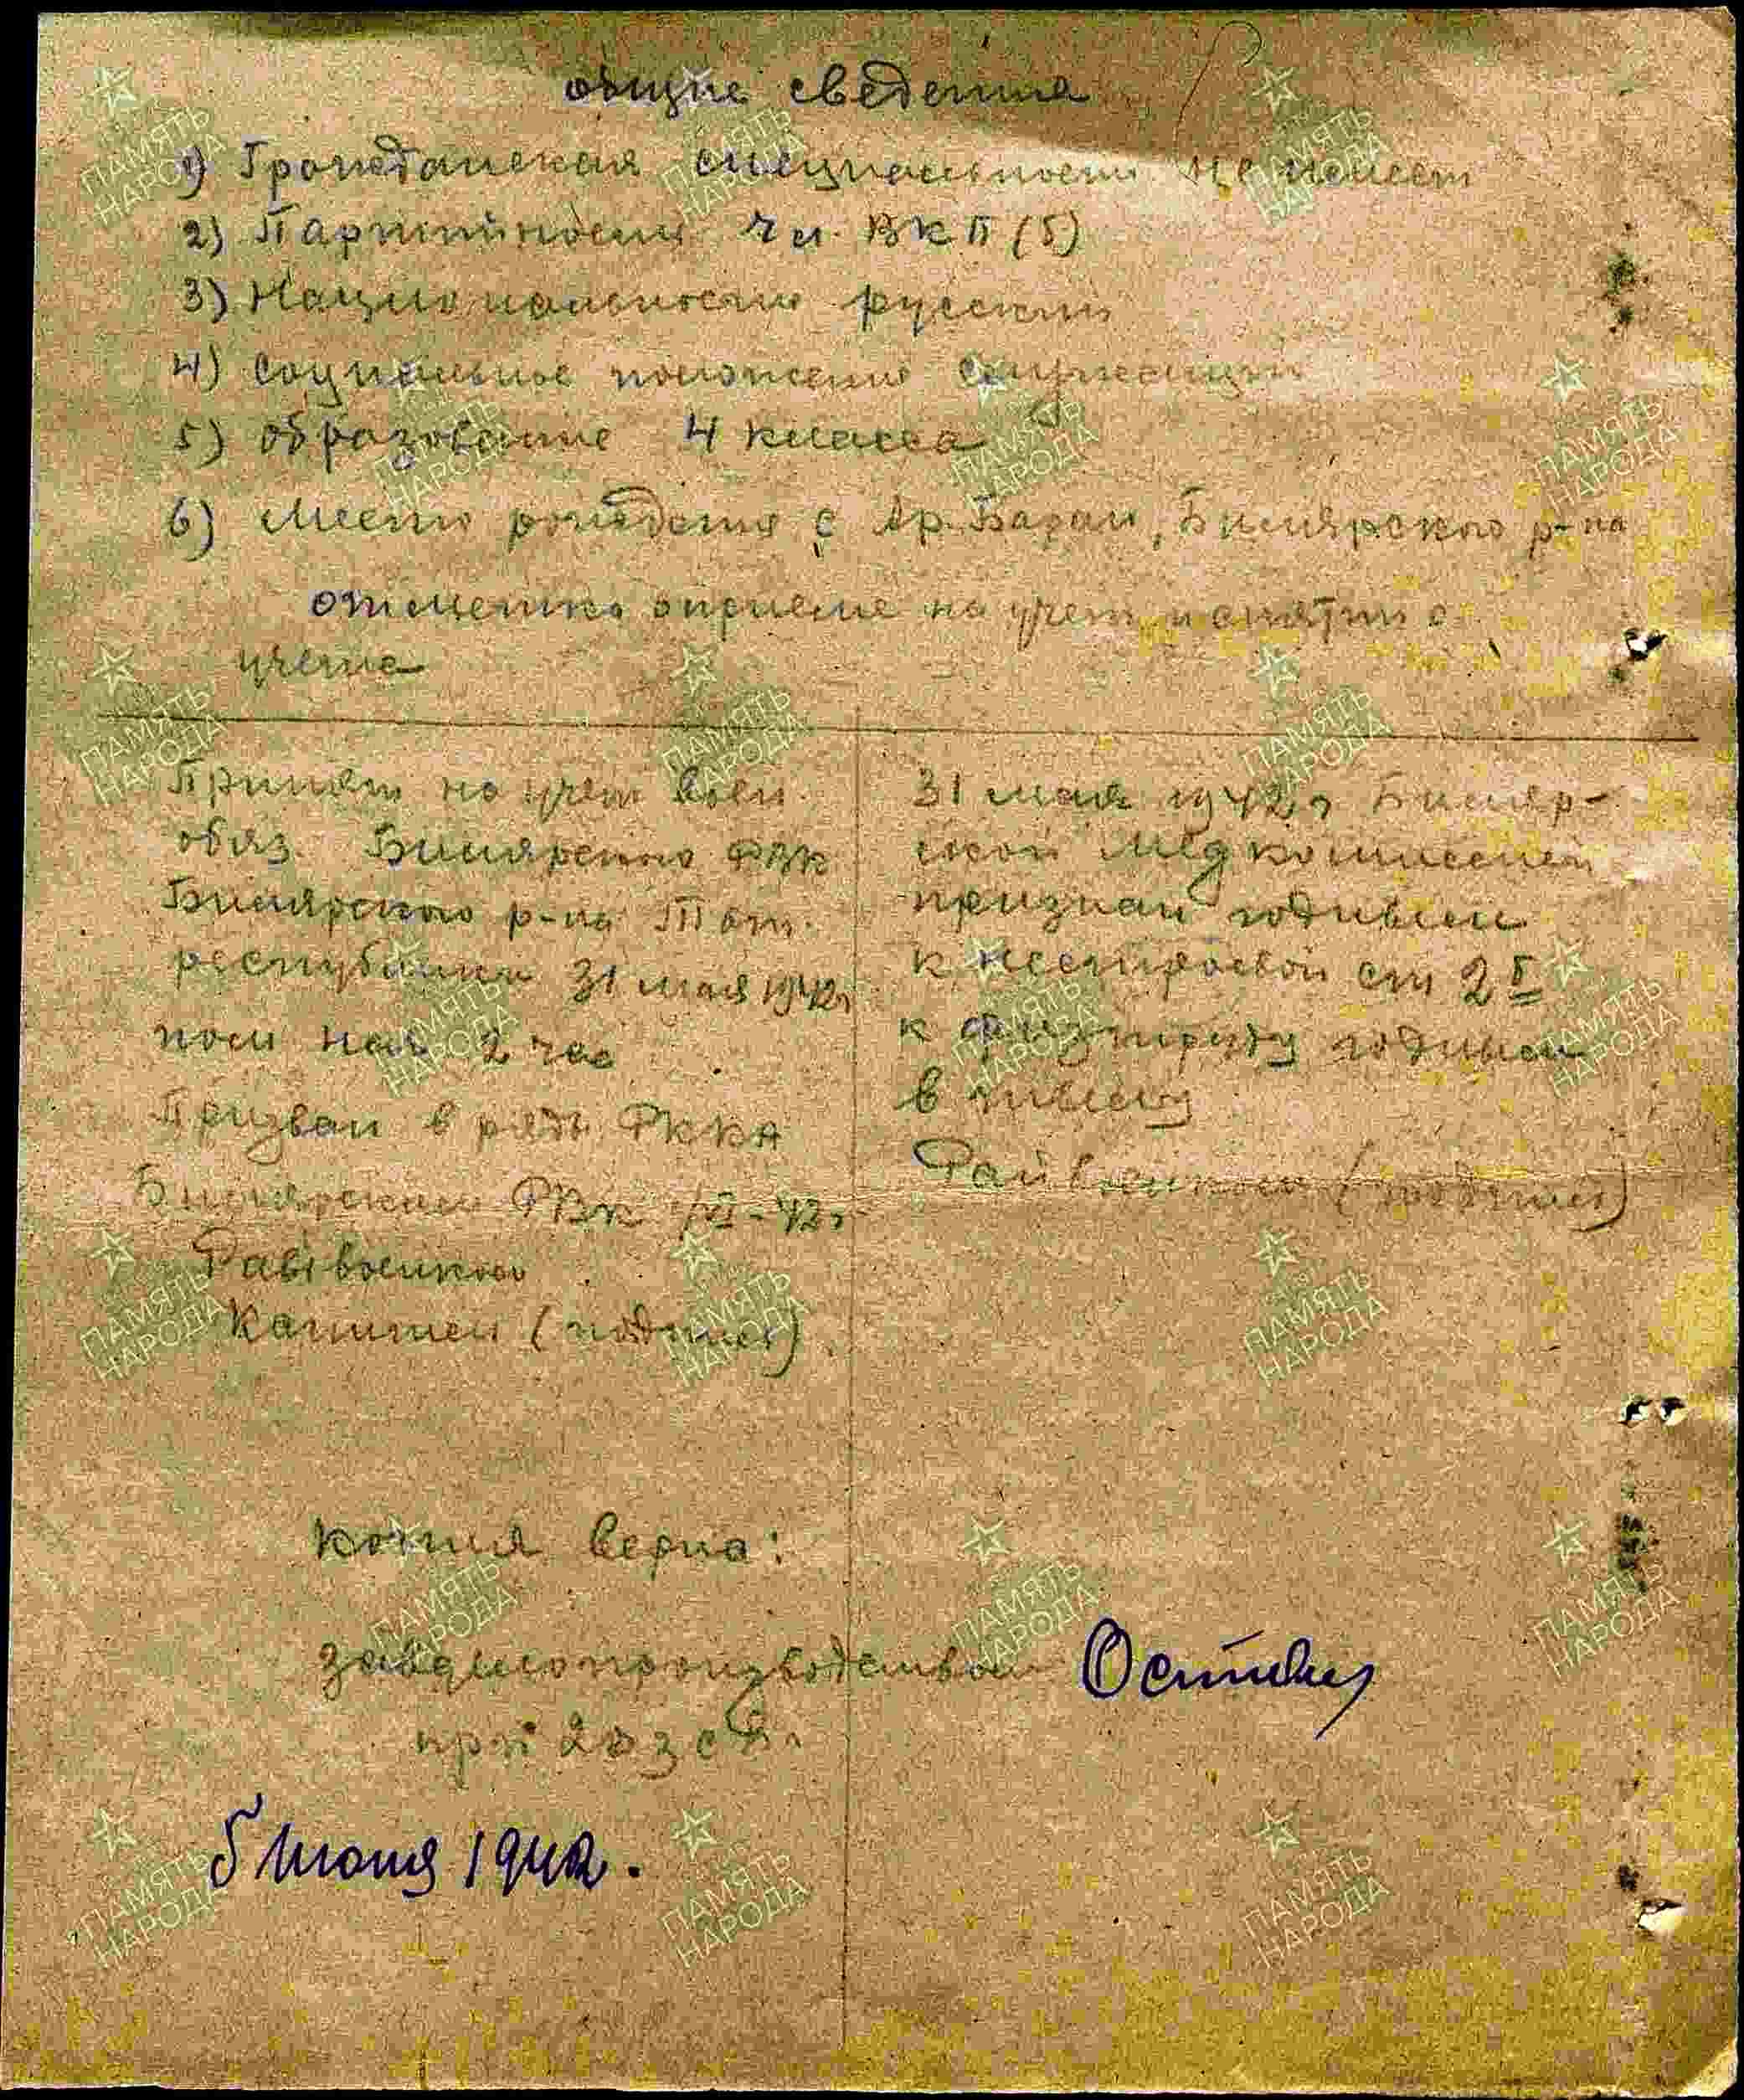 общие сведения
1) Гражданская специальность не имеет
2) Партийность чл. ВКП(б)
3) Национальность русский
4) Социальное положение служащий
5) образование 4 класса
6) Место рождения с Ар. Баран, Билярского р-на
отметка о приеме на учет и снятии с
учета
Принят на учет воен.
обяз. Билярского РВК
Билярского р-на Тат.
республики 31 мая 1942г
2 час
Призван в ряды РККА
Билярским РВК 1/VI-42г
Райвоенком
(подпись)
31 мая 1942г Биляр-
ской медкомиссией
признан годным
к нестроевой ст 2
к физтруду годным
в
Райвоенком (подпись)
копия верна:
завделопроизводством
при
5 июня 1942.
ПАМЯТЬ
НАРОДА